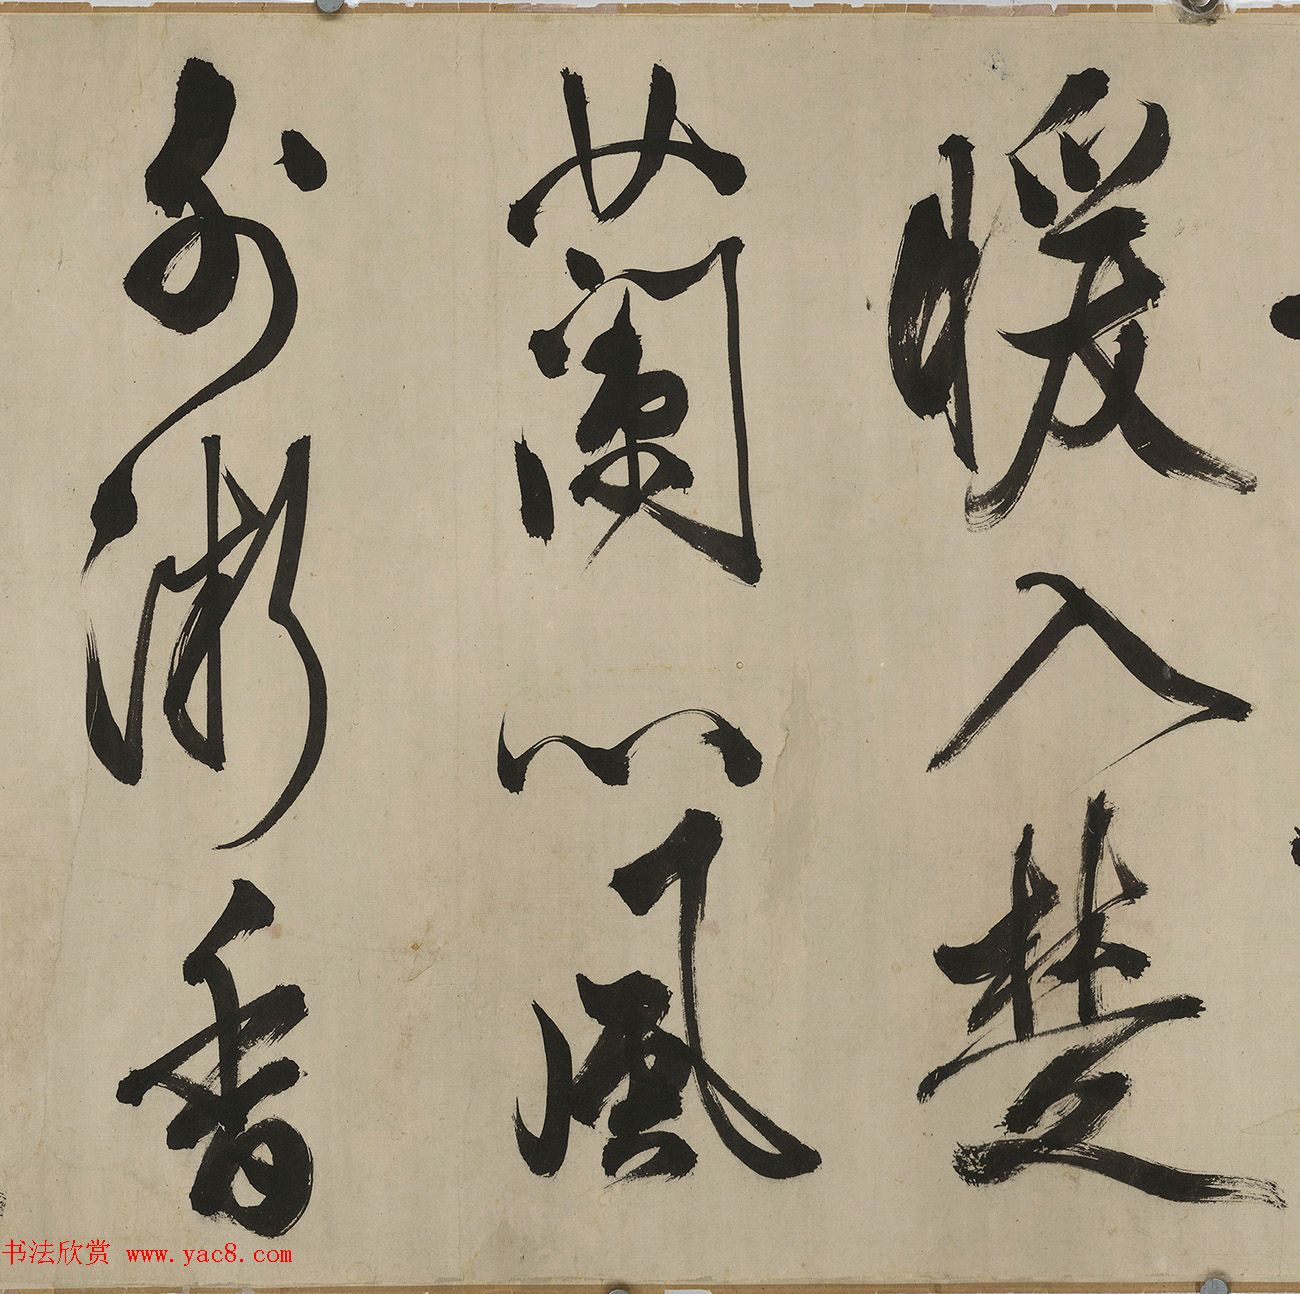 暖入楚
蘭心風
外漸香
书法欣赏 www.yac8.com